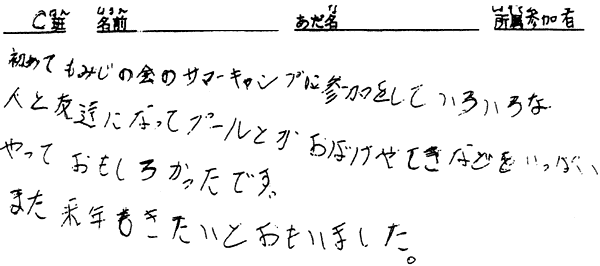 C班 名前 あだ名 所属 参加者
初めてもみじの会のサマーキャンプに参加をしていろいろな
人と友達になってプールとかおばけやしきなどをいっぱい
やっておもしろかったです。
また来年もきたいとおもいました。